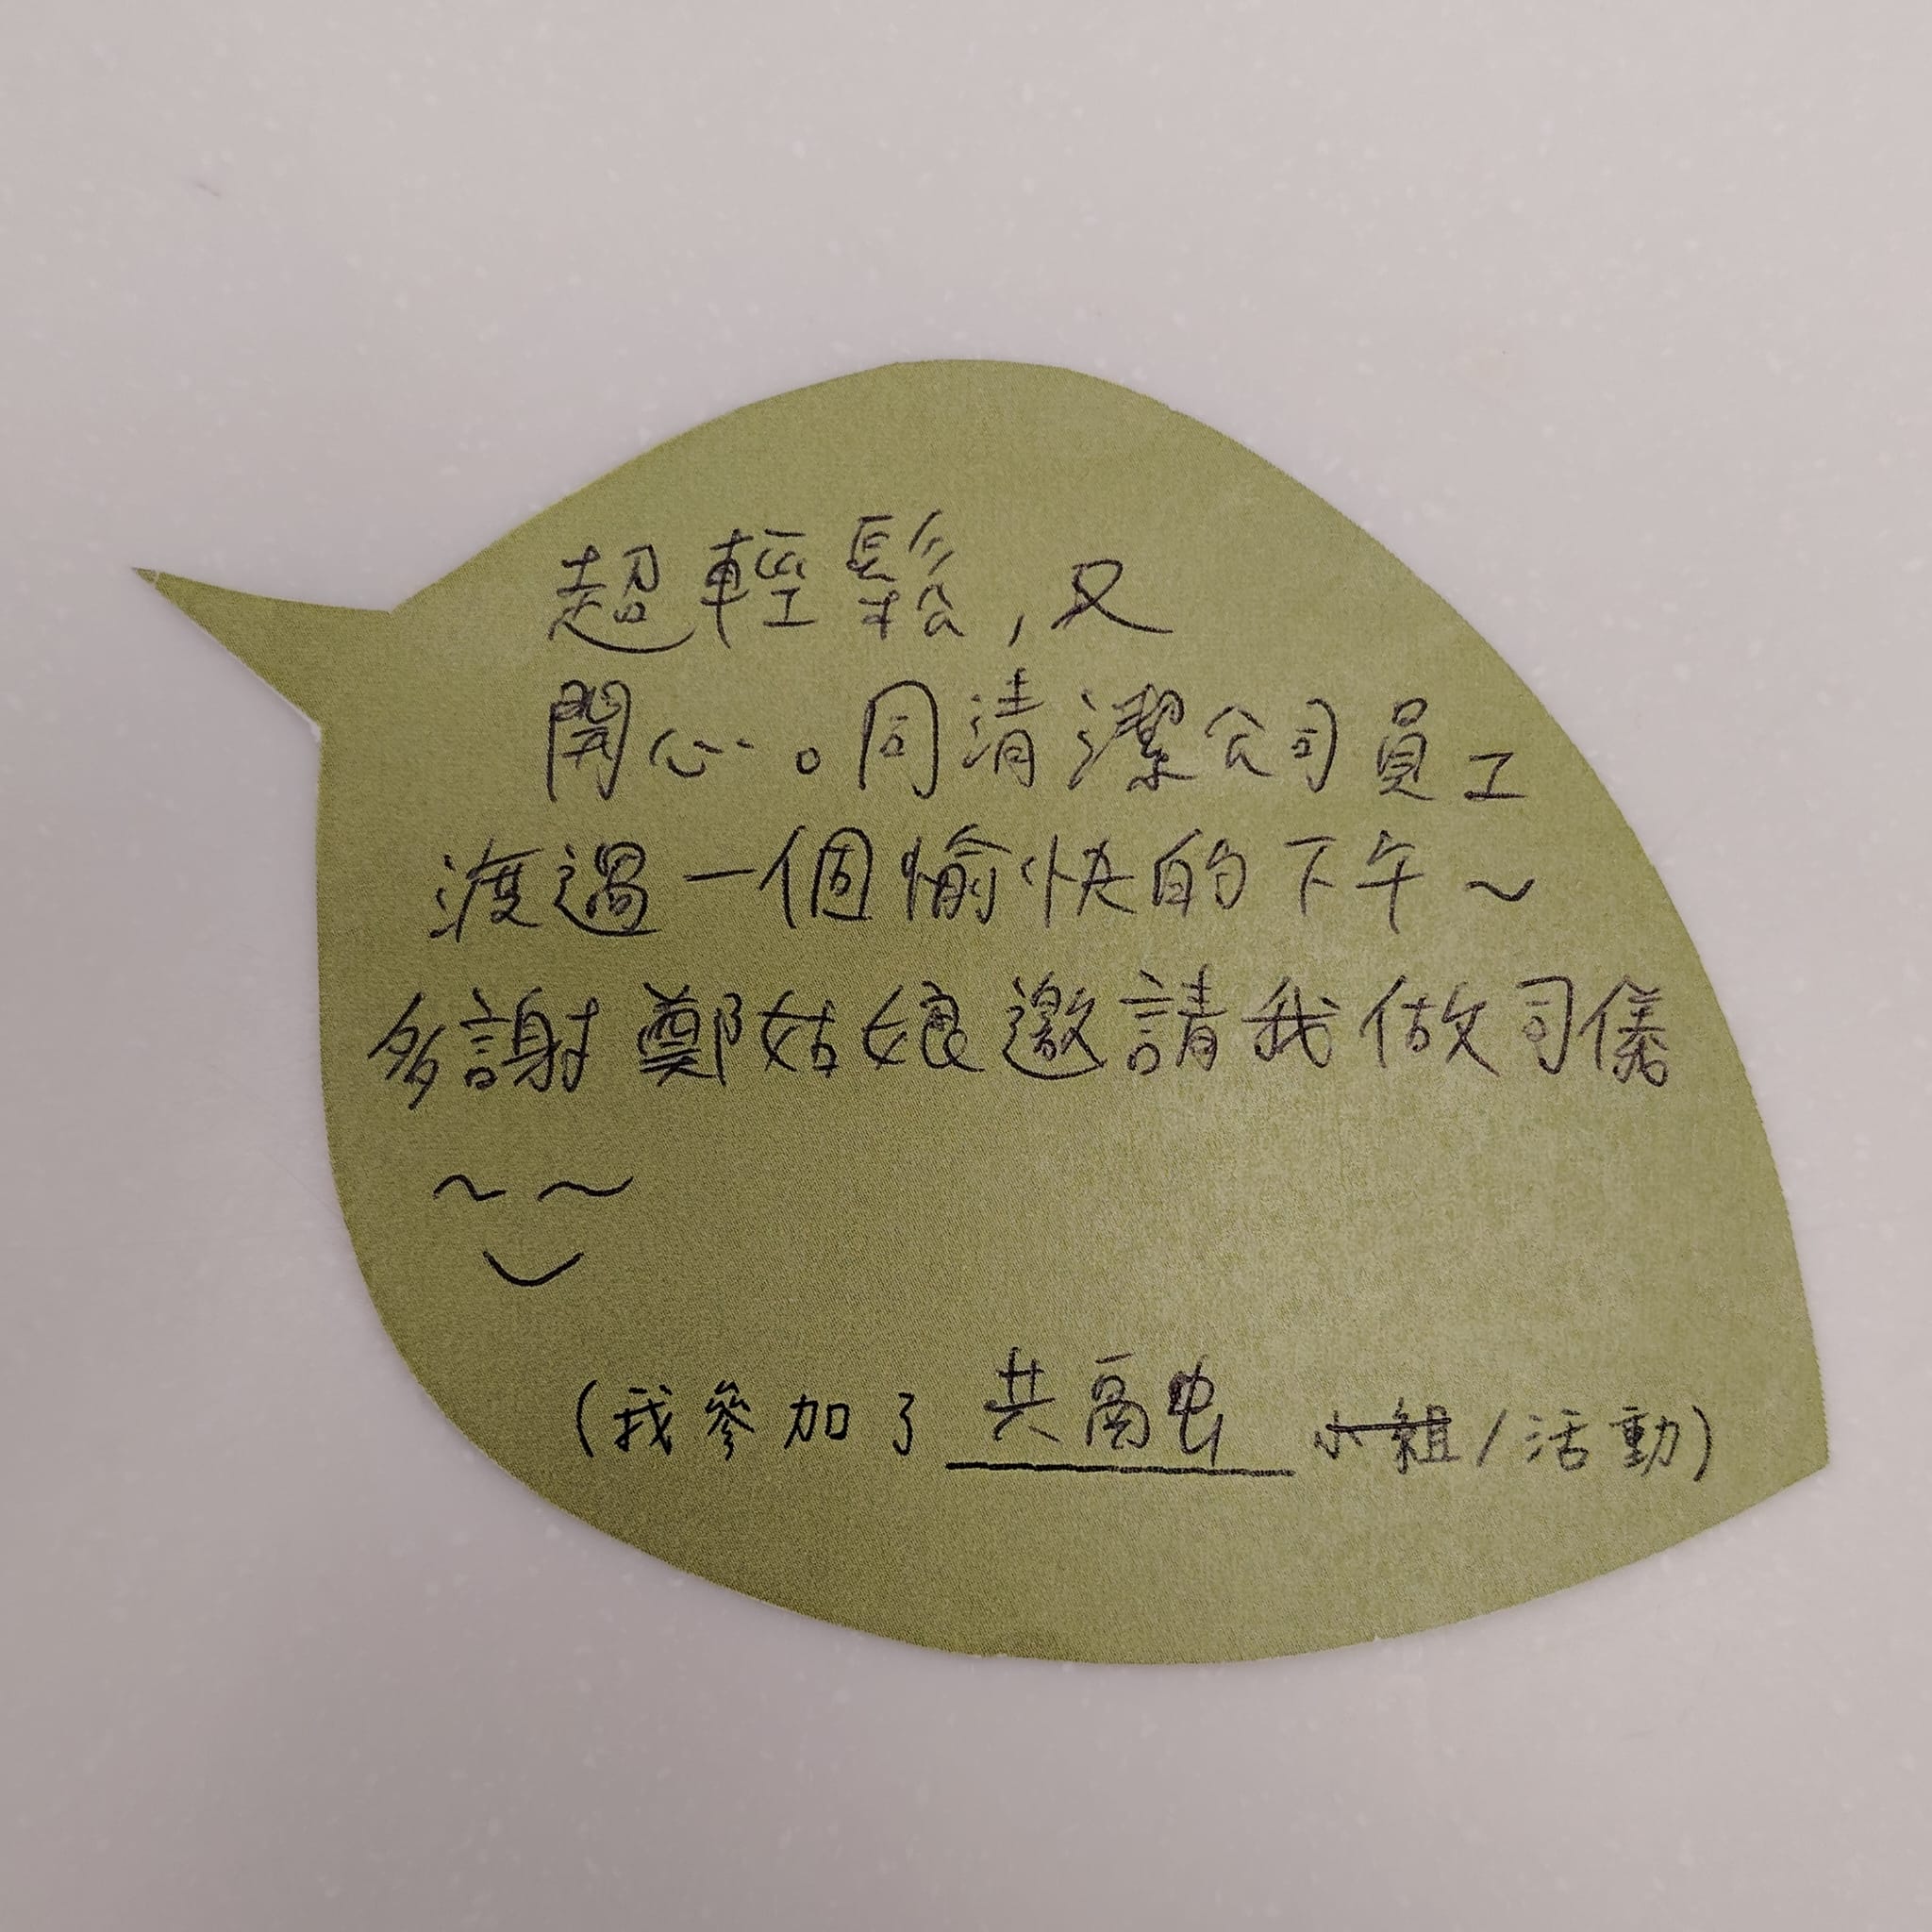 超輕鬆,又
開心。同清潔公司員工
渡過一個愉快的下午~
多謝鄭姑娘邀請我做司儀
~ ~
(我參加了 共融 小組/活動)